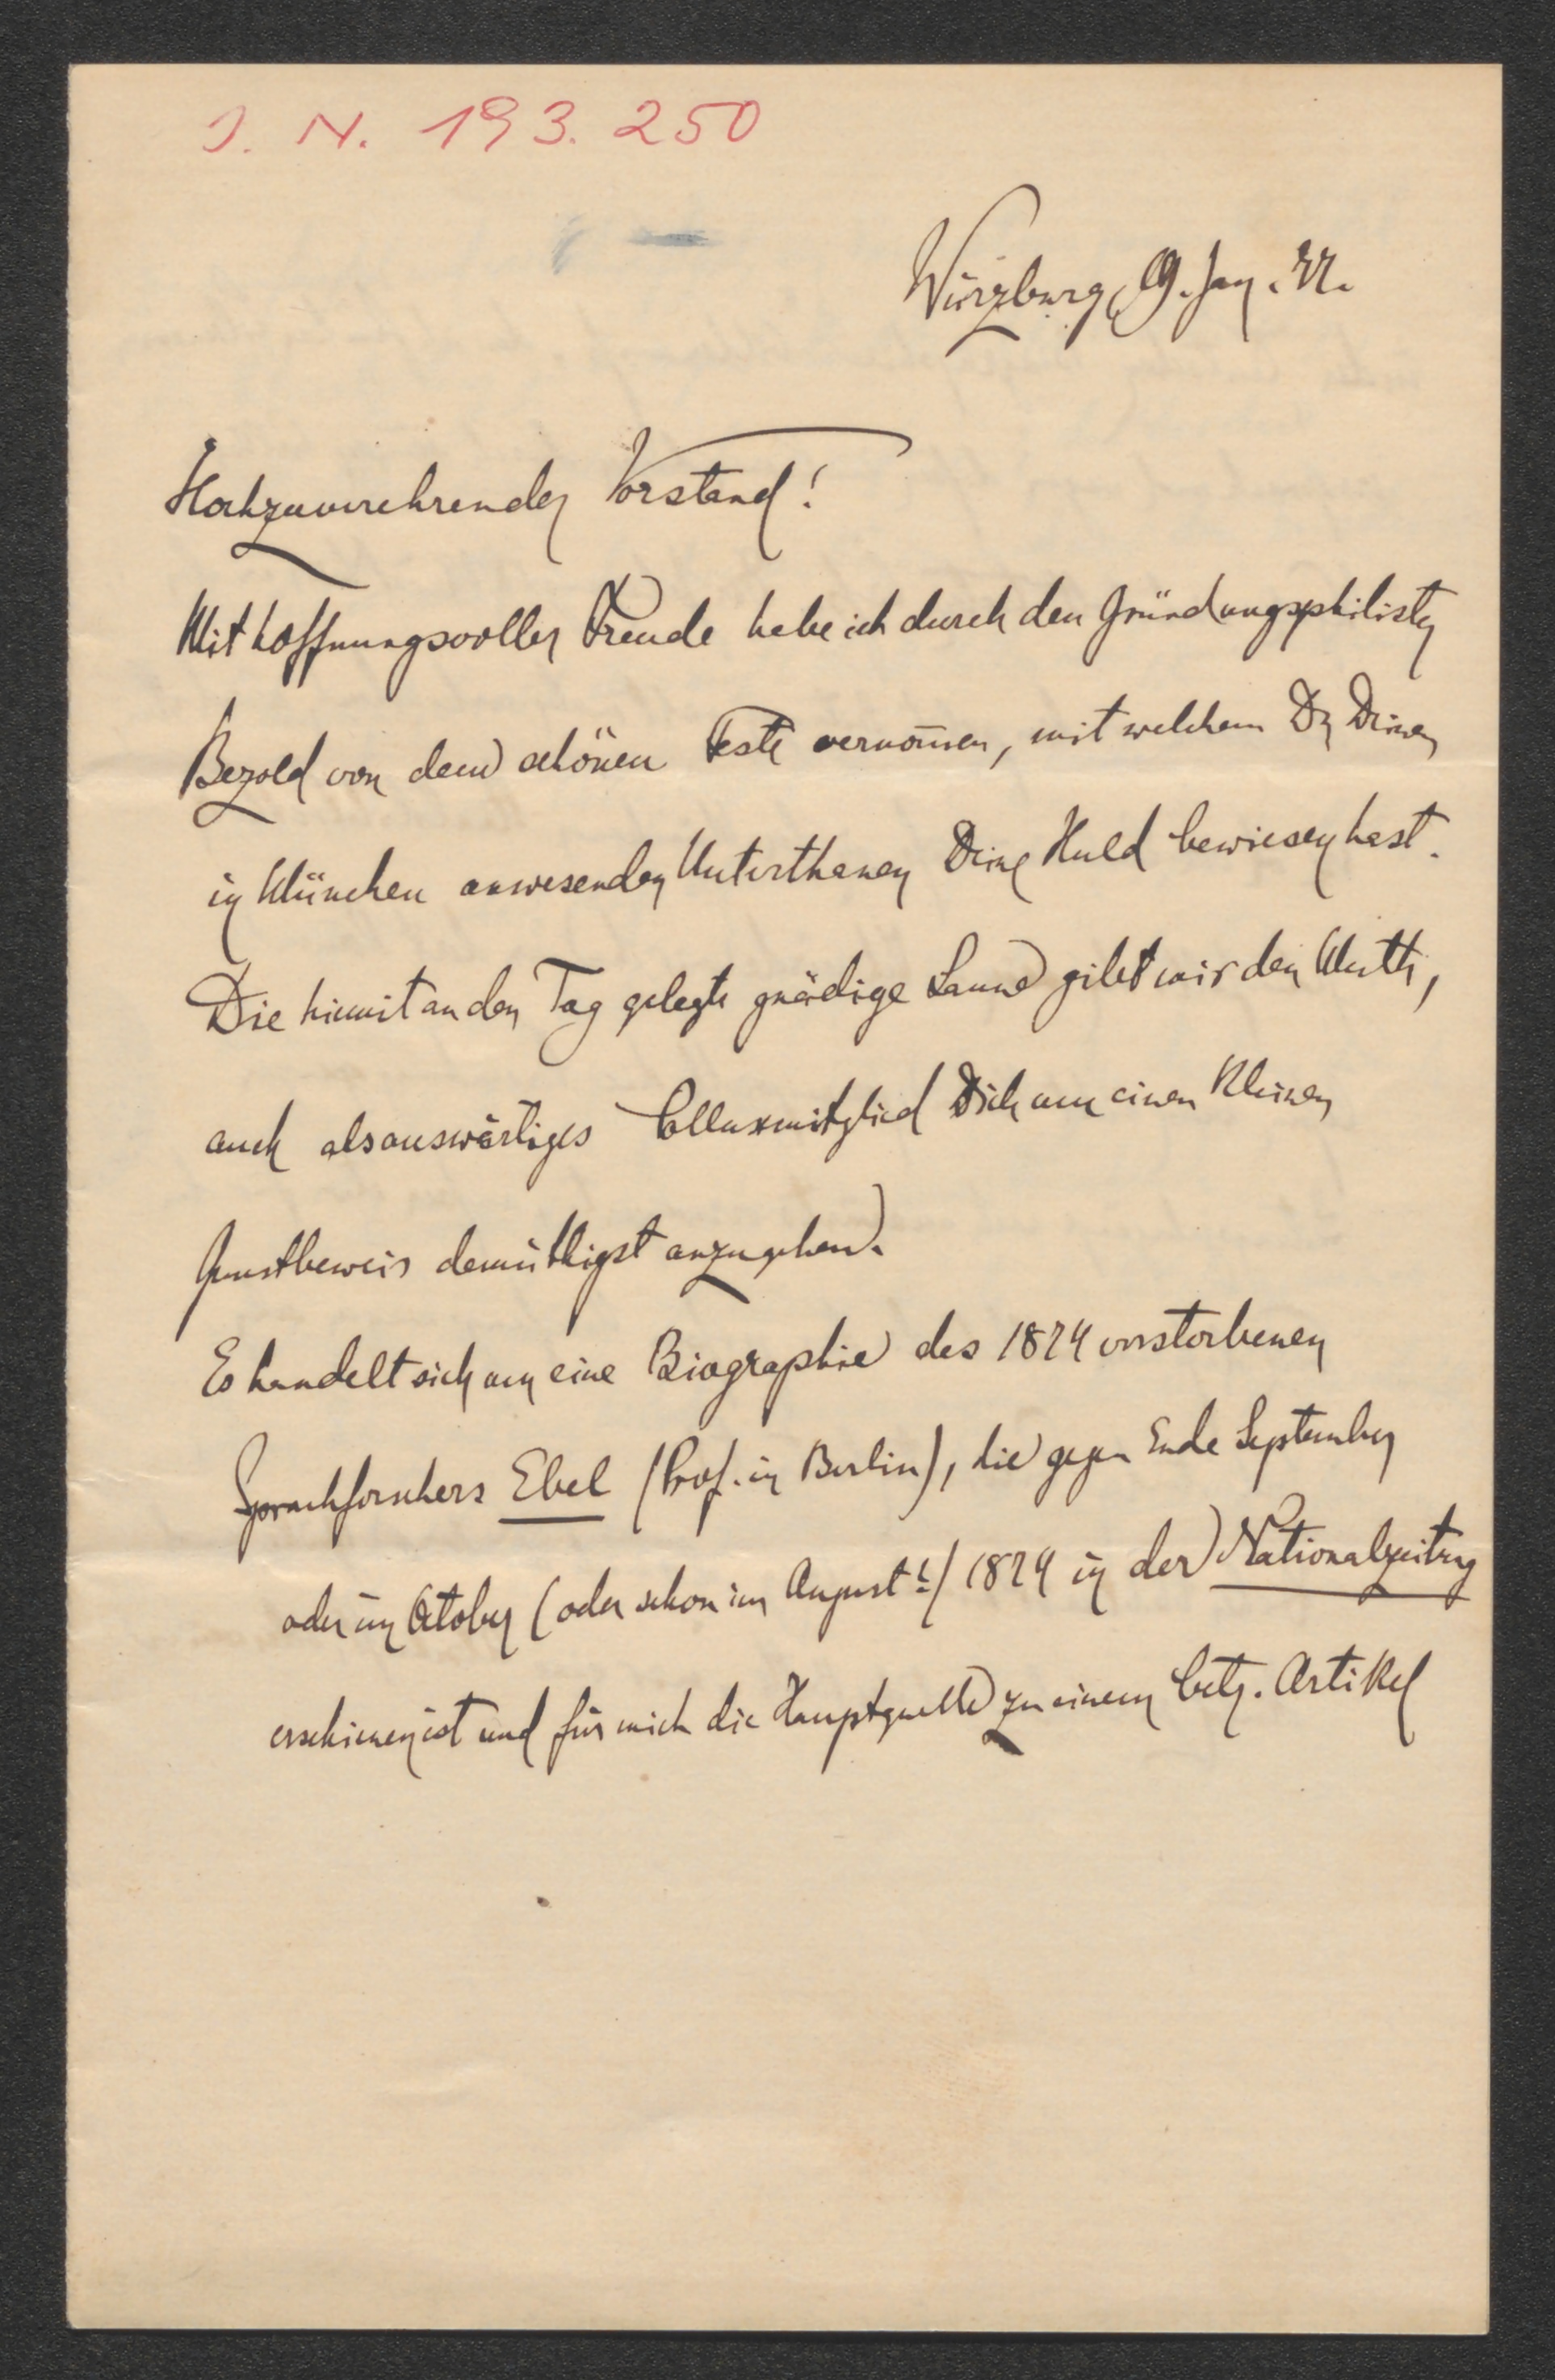 J. N. 193.250
Würzburg, 9. Jan. 77.
Hochzuverehrender Vorstand!
Mit hoffnungsvoller Freude habe ich durch den Gründungsphilister
Bezold von dem schönen Feste vernom̄en, mit welchem Du Deinen
in München anwesenden Unterthanen Deine Huld bewiesen hast.
Die hiemit an den Tag gelegte gnädige Laune gibt mir den Muth,
auch als auswärtiges Colluxmitglied Dich um einen kleinen
Gunstbeweis demüthigst anzugehen.
Es handelt sich um eine Biographie des 1874 verstorbenen
Sprachforschers Ebel (Prof. in Berlin), die gegen Ende September
oder im October (oder schon im August?) 1874 in der Nationalzeitung
erschienen ist und für mich die Hauptquelle zu einem betr. Artikel